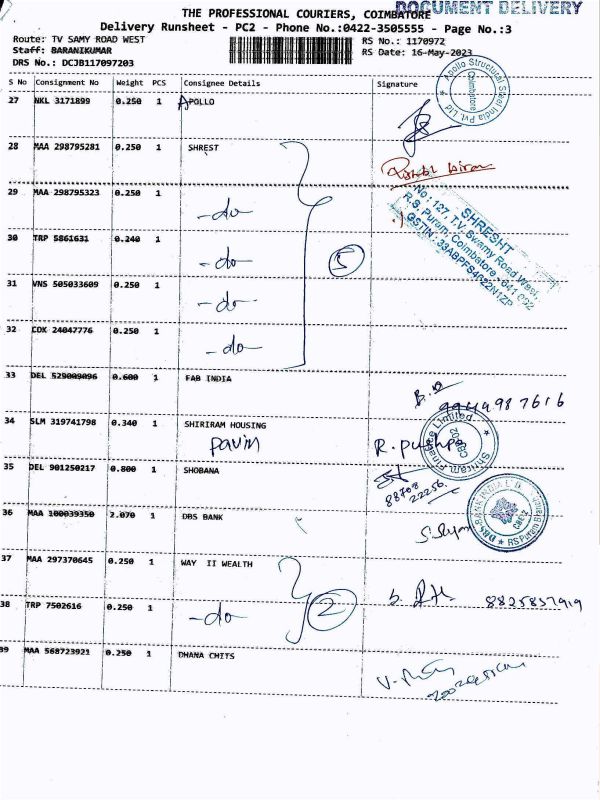 THE PROFESSIONAL COURIERS, COIMBATORE
DOCUMENT DELIVERY
Delivery Runsheet - PC2 - Phone No.:0422-3505555 - Page No.:3
Route: TV SAMY ROAD WEST RS No.: 1170972
Staff: BARANIKUMAR RS Date: 16-May-2023
DRS No.: DCJB117097203
S No Consignment No Weight PCS Consignee Details Signature
27 NKL 3171899 0.250 1 APOLLO
Apollo Structural Steel India Pvt. Ltd. Coimbatore
28 MAA 298795281 0.250 1 SHREST
29 MAA 298795323 0.250 1 -do-
SHRESHT
No: 127, T.V. Swamy Road West,
R.S. Puram, Coimbatore - 641 002
30 TRP 5861631 0.240 1 -do- 5
31 VNS 505033609 0.250 1 -do-
32 COK 24047776 0.250 1 -do-
33 DEL 529009096 0.600 1 FAB INDIA
9944987616
34 SLM 319741798 0.340 1 SHIRIRAM HOUSING
Pavin R. pushpa
Shriram Finance Limited CB02
35 DEL 901250217 0.800 1 SHOBANA
88708
22256
36 MAA 100039350 2.070 1 DBS BANK
37 MAA 297370645 0.250 1 WAY II WEALTH
38 TRP 7502616 0.250 1 -do- 2
8825837919
39 MAA 568723921 0.250 1 DHANA CHITS